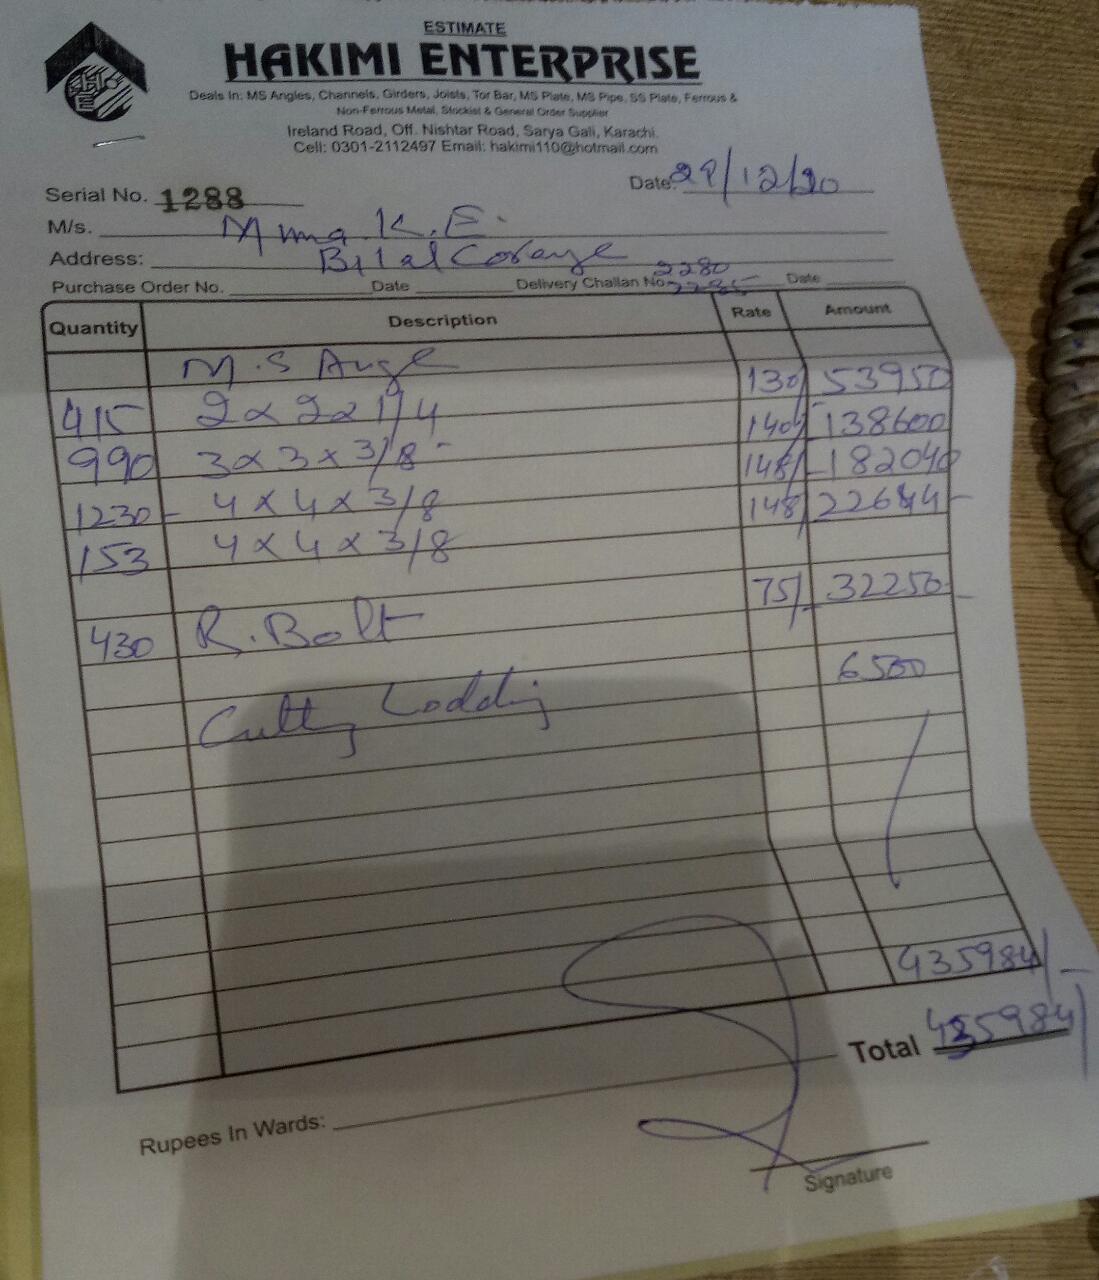 ESTIMATE
HAKIMI ENTERPRISE
Deals In: MS Angles, Channels, Girders, Joists, Tor Bar, MS Plate, MS Pipe, SS Plate, Ferrous &
Non-Ferrous Metal, Stockist & General Order Supplier
Ireland Road, Off. Nishtar Road, Sarya Gali, Karachi.
Cell: 0301-2112497 Email: hakimi110@hotmail.com
Serial No. 1288 Date: 29/12/20
M/s. K.E.
Address: Bilal
Purchase Order No. Date Delivery Challan No. 2280 Date
2285
Quantity Description Rate Amount
M.S Angle
415 2x2x1/4 130/ 53950
990 3x3x3/8 140/ 138600
1230 4x4x3/8 148/ 182040
153 4x4x3/8 148/ 22644
430 R.Bolt 75/ 32250
Cutting Lodding 6500
435984/-
Total 435984/
Rupees In Wards:
Signature